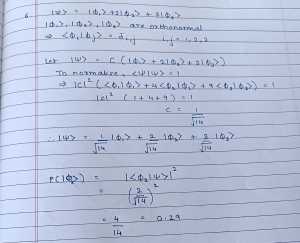 6 |Ψ> = |Φ₁> + 2|Φ₂> + 3|Φ₃>
|Φ₁>, |Φ₂>, |Φ₃> are orthonormal
⇒ <Φᵢ|Φⱼ> = δᵢⱼ i,j = 1,2,3
Let |Ψ> = C (|Φ₁> + 2|Φ₂> + 3|Φ₃>)
To normalise, <Ψ|Ψ> = 1
⇒ |C|² (<Φ₁|Φ₁> + 4<Φ₂|Φ₂> + 9<Φ₃|Φ₃>) = 1
|C|² (1 + 4 + 9) = 1
C = 1/√14
∴ |Ψ> = 1/√14 |Φ₁> + 2/√14 |Φ₂> + 3/√14 |Φ₃>
P(|Φ₂>) = |<Φ₂|Ψ>|²
= (2/√14)²
= 4/14 = 0.29